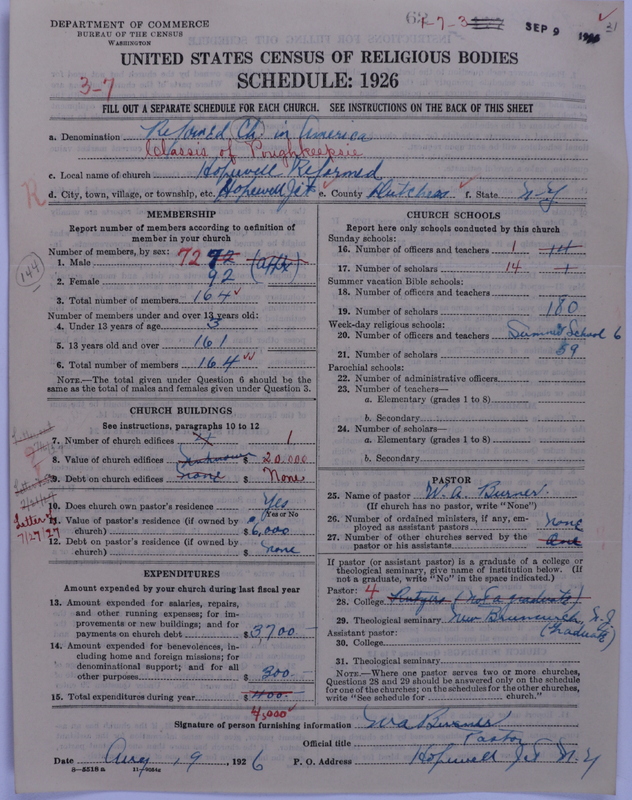 DEPARTMENT OF COMMERCE
BUREAU OF THE CENSUS
WASHINGTON
R 7-3
SEP 9 1926
21
UNITED STATES CENSUS OF RELIGIOUS BODIES
3-7
SCHEDULE: 1926
FILL OUT A SEPARATE SCHEDULE FOR EACH CHURCH. SEE INSTRUCTIONS ON THE BACK OF THIS SHEET
a. Denomination Reformed Ch. in America
Classis of Poughkeepsie
c. Local name of church Hopewell Reformed
R
d. City, town, village, or township, etc. Hopewell Jct e. County Dutchess f. State N-Y
MEMBERSHIP
Report number of members according to definition of
member in your church
144
Number of members, by sex:
1. Male 72 72 (appx)
2. Female 92
3. Total number of members 164
Number of members under and over 13 years old:
4. Under 13 years of age 3
5. 13 years old and over 161
6. Total number of members 164
NOTE.—The total given under Question 6 should be the
same as the total of males and females given under Question 3.
CHURCH BUILDINGS
See instructions, paragraphs 10 to 12
7. Number of church edifices 1
8. Value of church edifices Unknown $ 20.000
9. Debt on church edifices none $ None
10. Does church own pastor's residence Yes
Yes or No
Letter
7/27/27
11. Value of pastor's residence (if owned by
church) $ 6,000
12. Debt on pastor's residence (if owned by
church) $ none
EXPENDITURES
Amount expended by your church during last fiscal year
13. Amount expended for salaries, repairs,
and other running expenses; for im-
provements or new buildings; and for
payments on church debt $ 3700
14. Amount expended for benevolences, in-
cluding home and foreign missions; for
denominational support; and for all
other purposes $ 300
15. Total expenditures during year $ 400
4,000
CHURCH SCHOOLS
Report here only schools conducted by this church
Sunday schools:
16. Number of officers and teachers 1 14
17. Number of scholars 14 1
Summer vacation Bible schools:
18. Number of officers and teachers
19. Number of scholars 180
Week-day religious schools:
20. Number of officers and teachers Summer School 6
21. Number of scholars 59
Parochial schools:
22. Number of administrative officers
23. Number of teachers—
a. Elementary (grades 1 to 8)
b. Secondary
24. Number of scholars—
a. Elementary (grades 1 to 8)
b. Secondary
PASTOR
25. Name of pastor W. A. Burner.
(If church has no pastor, write "None")
26. Number of ordained ministers, if any, em-
ployed as assistant pastors none
27. Number of other churches served by the
pastor or his assistants One
If pastor (or assistant pastor) is a graduate of a college or
theological seminary, give name of institution below. (If
not a graduate, write "No" in the space indicated.)
Pastor: 4
28. College Rutgers (Not a graduate)
29. Theological seminary New Brunswick, N.J.
(Graduate)
Assistant pastor:
30. College
31. Theological seminary
NOTE.—Where one pastor serves two or more churches,
Questions 28 and 29 should be answered only on the schedule
for one of the churches; on the schedules for the other churches,
write "See schedule for church."
Signature of person furnishing information
Official title Pastor
Date Aug, 9, 1926 P. O. Address Hopewell Jct N-Y
8—5518 a 11—9054a